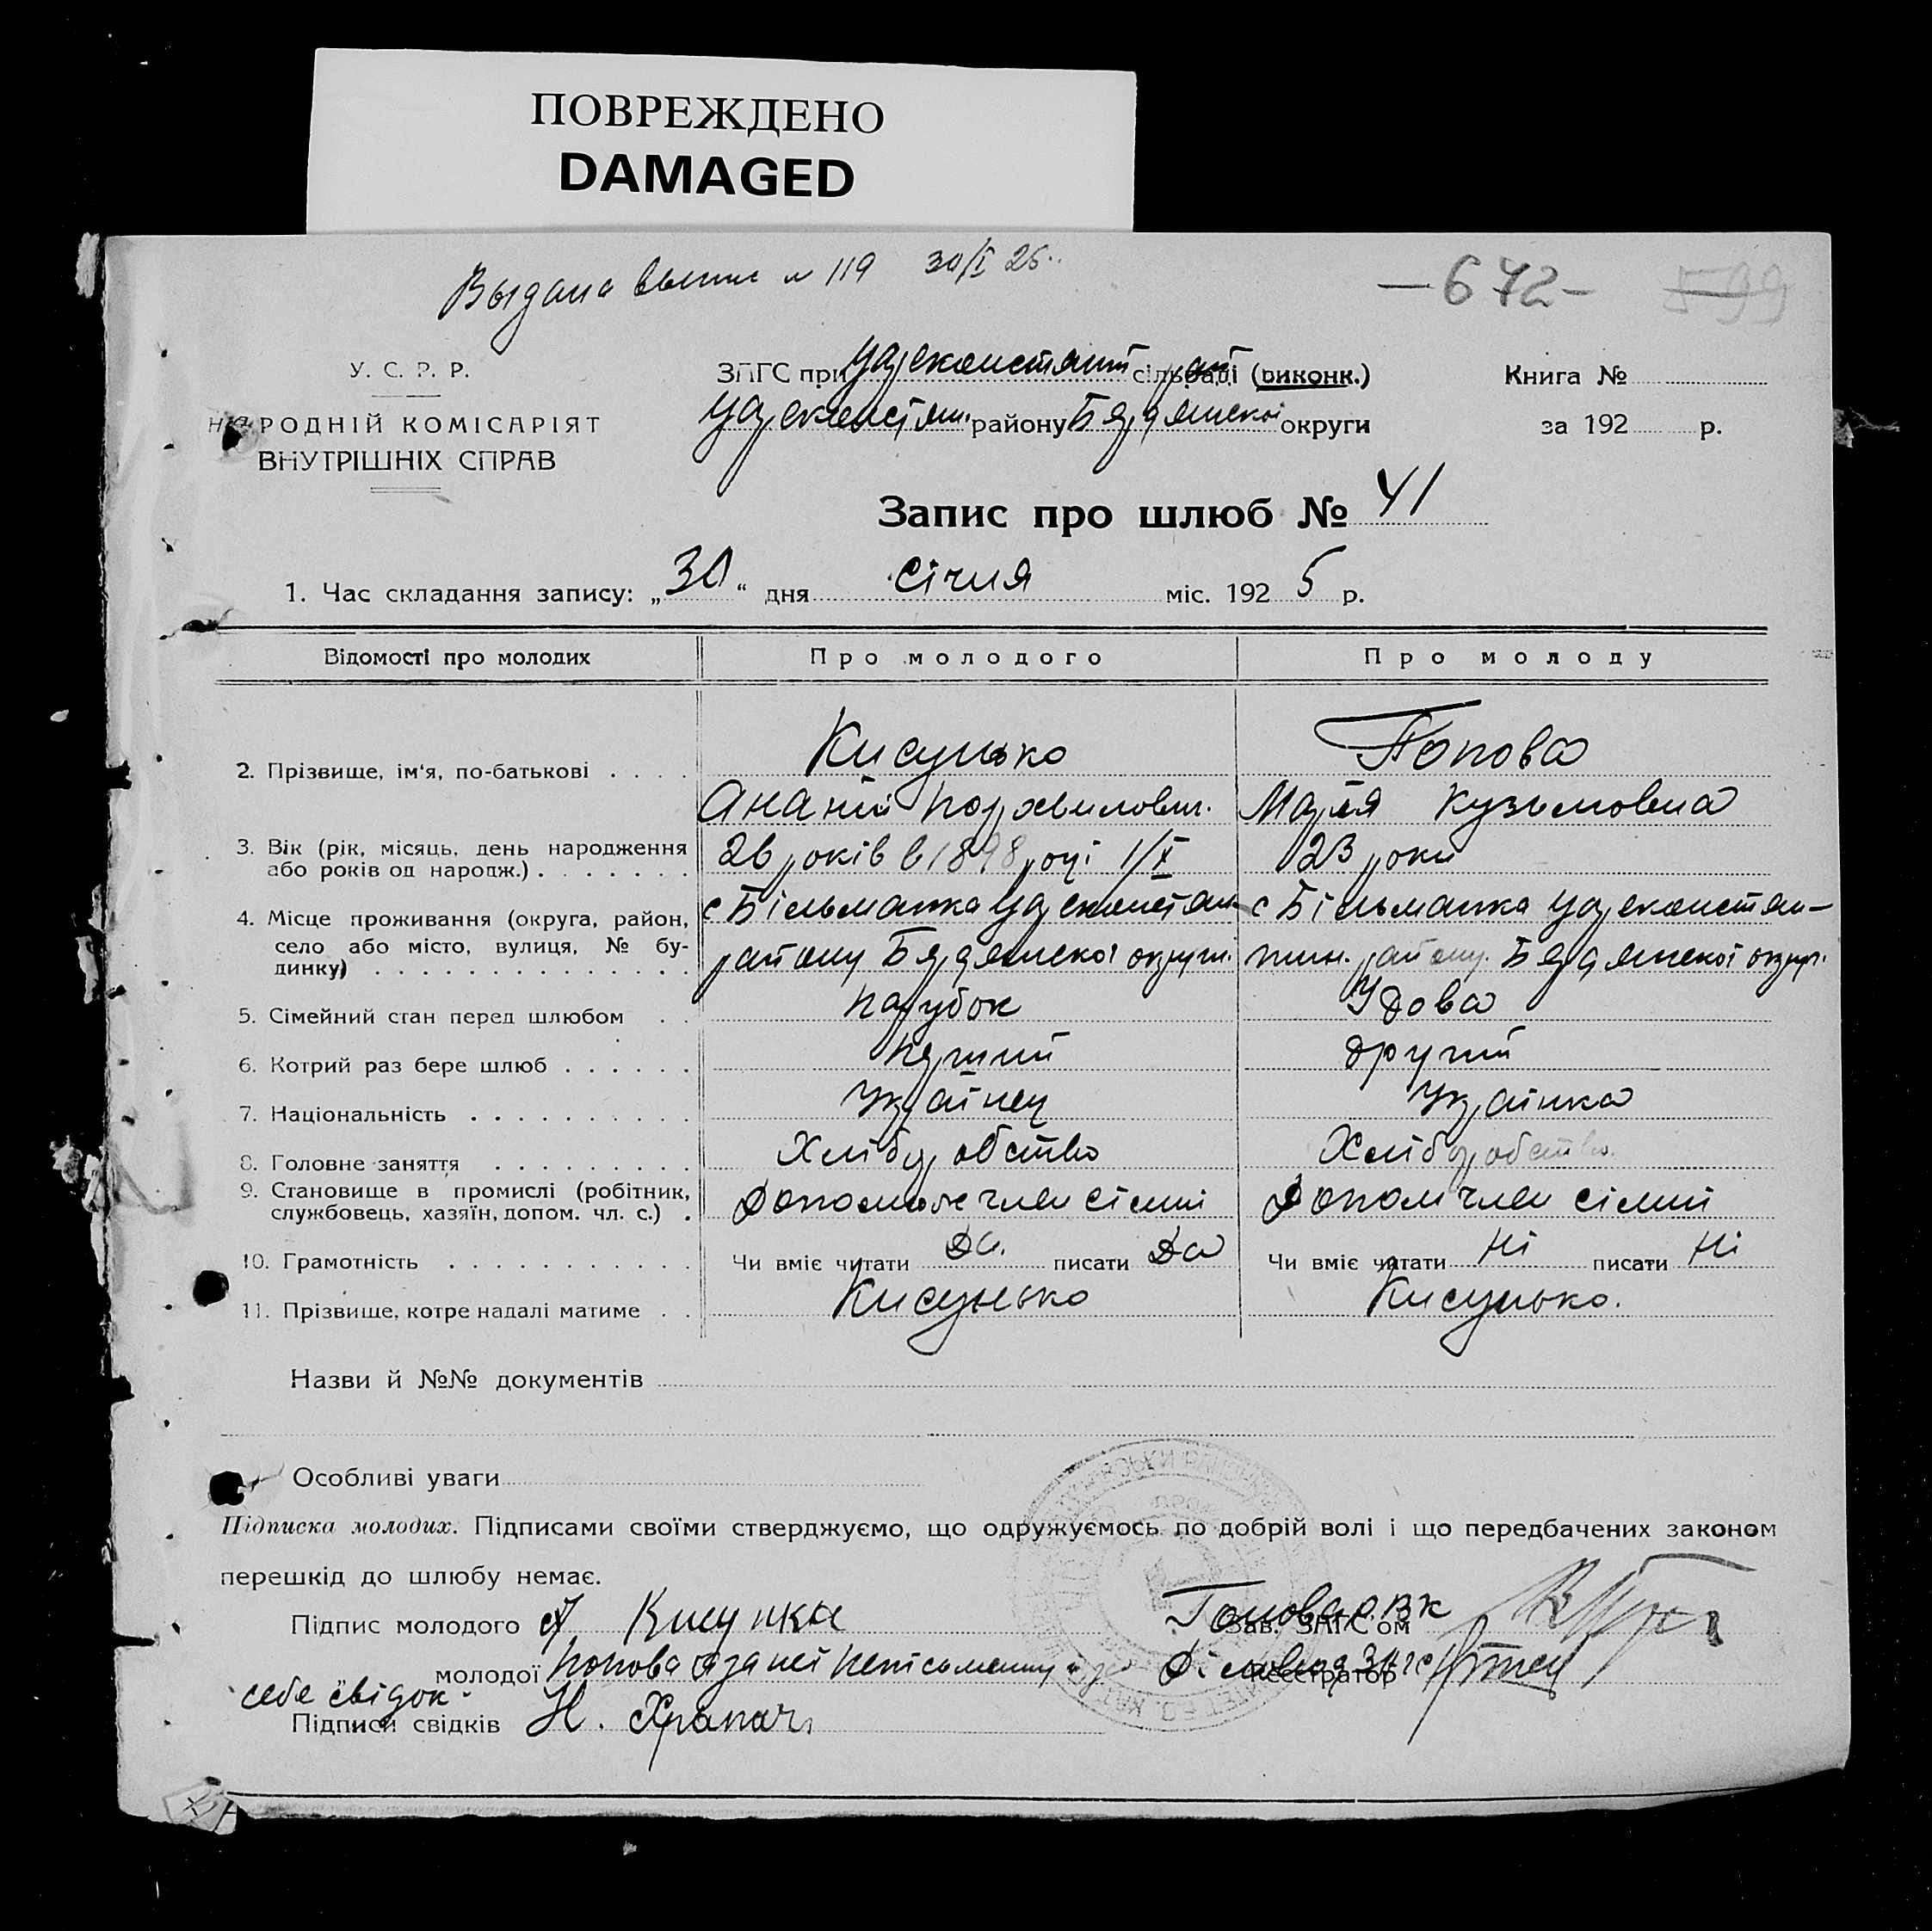 ПОВРЕЖДЕНО
DAMAGED
Выдана выпис № 119 30/I 25.
—672— 599
У. С. Р. Р.
НАРОДНІЙ КОМІСАРІЯТ
ВНУТРІШНІХ СПРАВ
ЗАГС при Цареконстянт сільраді (виконк.)
Цареконстян. району Бердянської округи
Книга №
за 192 р.
Запис про шлюб № 41
1. Час складання запису: „30“ дня січня міс. 1925 р.
Відомості про молодих Про молодого Про молоду
2. Прізвище, ім'я, по-батькові . . . . Кисунько Попова
Ананій Марія Кузьмовна
3. Вік (рік, місяць, день народження або років од народж.) 26 років в 1898 році 1/X 23 роки
4. Місце проживання (округа, район, село або місто, вулиця, № будинку) с Більманка Цареконстян- с Більманка Цареконстян-
району Бердянської округи. тин. району. Бердянської округ.
5. Сімейний стан перед шлюбом . . Парубок Удова
6. Котрий раз бере шлюб . . . . . . Перший Другий
7. Національність . . . . . . . . . . Українец Українка
8. Головне заняття . . . . . . . . . Хліборобство Хліборобство.
9. Становище в промислі (робітник, службовець, хазяїн, допом. чл. с.) . Допомож член сімні Допом член сімні
10. Грамотність . . . . . . . . . . . Чи вміє читати Да. писати Да Чи вміє читати Ні писати Ні
11. Прізвище, котре надалі матиме . . Кисунько Кисунько.
Назви й №№ документів
Особливі уваги
Підписка молодих. Підписами своїми стверджуємо, що одружуємось по добрій волі і що передбачених законом
перешкід до шлюбу немає.
Підпис молодого А Кисунка Голова РВК
Зав. ЗАГС'ом
молодої Попова а за неї неписьменну Діловод ЗАГС
Реєстратор
себе свідок.
Підписи свідків Н. Храпач